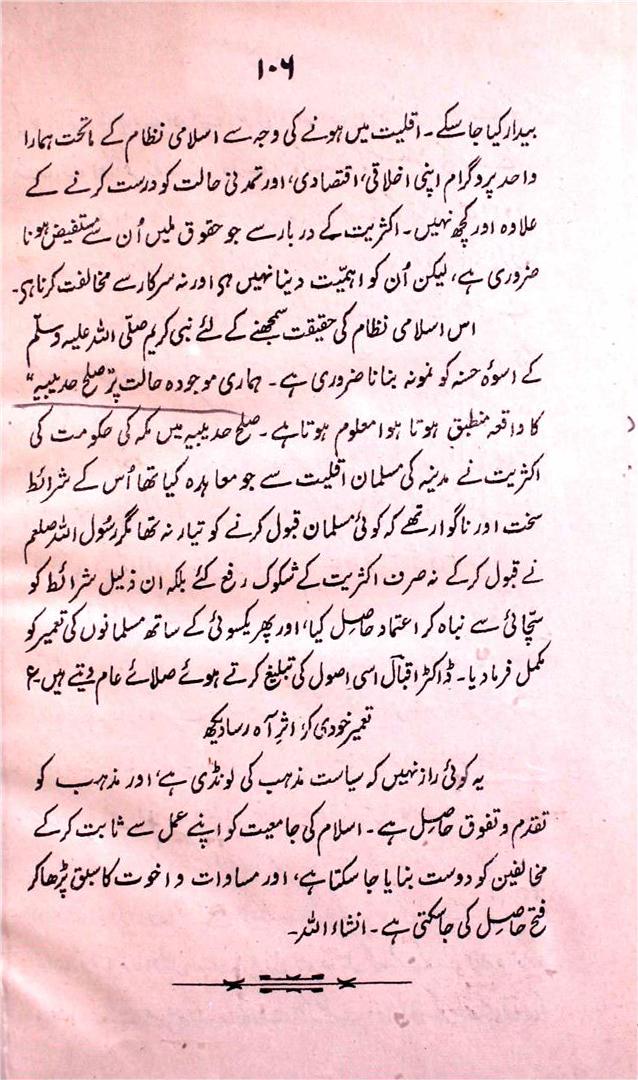 ۱۰۶
بیدار کیا جا سکے۔ اقلیت میں ہونے کی وجہ سے اسلامی نظام کے ماتحت ہمارا
واحد پروگرام اپنی اخلاقی، اقتصادی، اور تمدنی حالت کو درست کرنے کے
علاوہ اور کچھ نہیں۔ اکثریت کے دربار سے جو حقوق ملیں اُن سے مستفیض ہونا
ضروری ہے، لیکن اُن کو اہمیّت دینا نہیں ہی اور نہ سرکار سے مخالفت کرنا ہی۔
اس اسلامی نظام کی حقیقت سمجھنے کے لئے نبی کریم صلّی اللہ علیہ وسلّم
کے اسوۂ حسنہ کو نمونہ بنانا ضروری ہے۔ ہماری موجودہ حالت پر "صلح حدیبیہ"
کا واقعہ منطبق ہوتا ہوا معلوم ہوتا ہے۔ صلح حدیبیہ میں مکہ کی حکومت کی
اکثریت نے مدینہ کی مسلمان اقلیت سے جو معاہدہ کیا تھا اُس کے شرائط
سخت اور ناگوار تھے کہ کوئی مسلمان قبول کرنے کو تیار نہ تھا مگر رسُول اللہ صلعم
نے قبول کر کے نہ صرف اکثریت کے شکوک رفع کئے بلکہ ان ذلیل شرائط کو
سچّائی سے نباہ کر اعتماد حاصل کیا، اور پھر یکسوئی کے ساتھ مسلمانوں کی تعمیر کو
مکمل فرما دیا۔ ڈاکٹر اقبالؔ اسی اصول کی تبلیغ کرتے ہوئے صلائے عام دیتے ہیں ؏
تعمیر خودی کر، اثرِ آہ رسا دیکھ
یہ کوئی راز نہیں کہ سیاست مذہب کی لونڈی ہے، اور مذہب کو
تقدم و تفوق حاصل ہے۔ اسلام کی جامعیت کو اپنے عمل سے ثابت کر کے
مخالفین کو دوست بنایا جا سکتا ہے، اور مساوات و اخوت کا سبق پڑھا کر
فتح حاصل کی جا سکتی ہے۔ انشاء اللہ۔